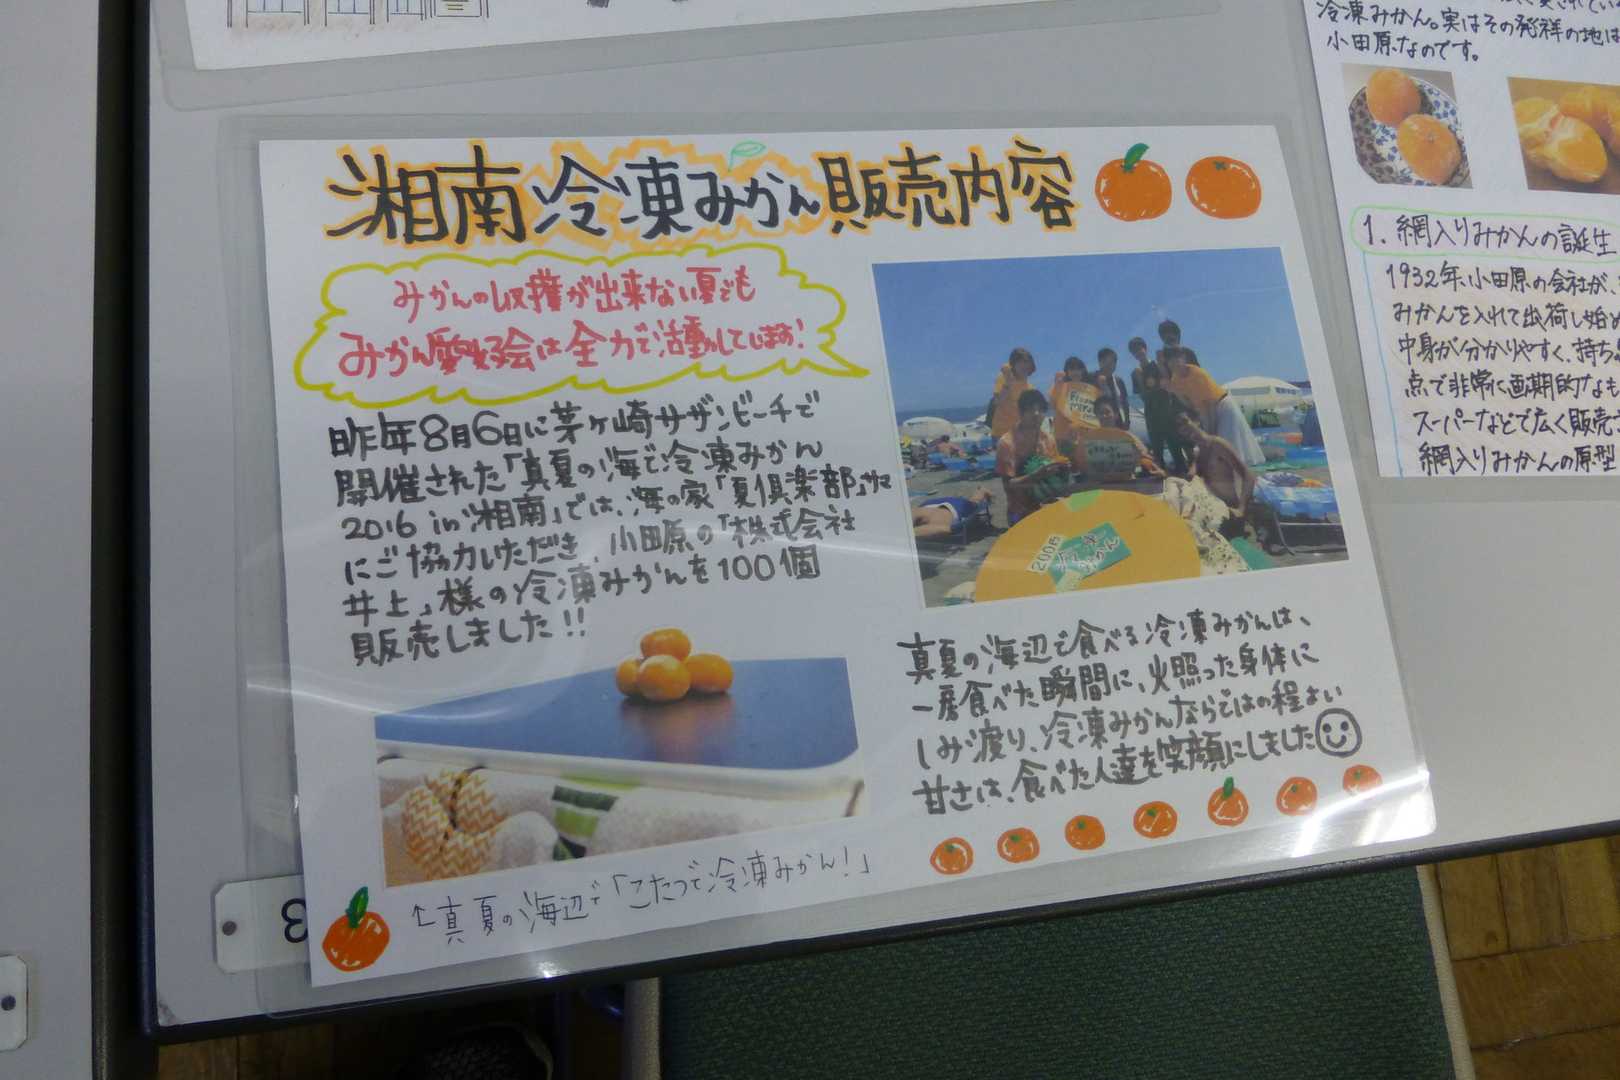 湘南冷凍みかん販売内容
みかんの収穫が出来ない夏でも
みかん愛好会は全力で活動してします!
昨年8月6日に茅ヶ崎サザンビーチで
開催された「真夏の海で冷凍みかん
2016 in 湘南」では、海の家「夏倶楽部」サマ
にご協力いただき、小田原の「株式会社
井上」様の冷凍みかんを100個
販売しました!!
200円
冷凍
みかん
真夏の海辺で食べる冷凍みかんは、
一度食べた瞬間に、火照った身体に
しみ渡り、冷凍みかんならではの程よい
甘さは、食べた人達を笑顔にしました
↑真夏の海辺で「こたつで冷凍みかん!」
冷凍みかん。実はその発祥の地は
小田原なのです。
1. 網入りみかんの誕生
1932年、小田原の会社が、
みかんを入れて出荷し始め
中身が分かりやすく、持ち
点で非常に画期的なも
スーパーなどで広く販売
網入りみかんの原型